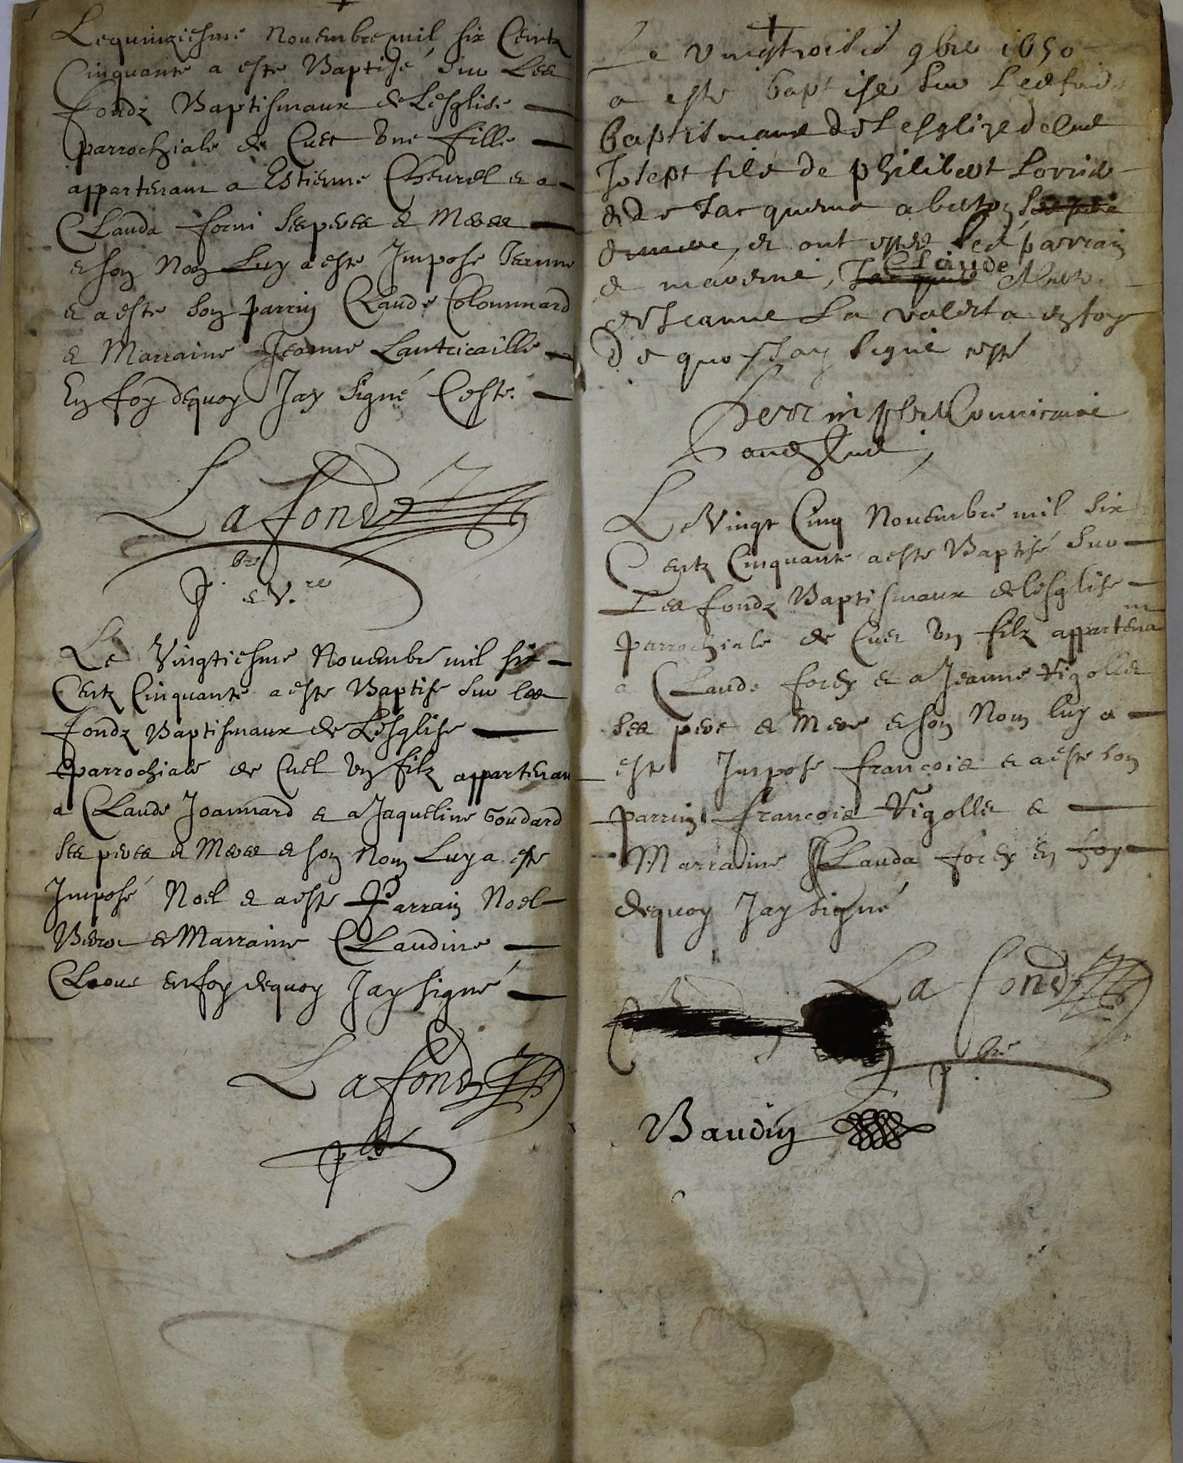 Lequinziesme Novembre mil six Centz
Cinquante a este Baptisé sur Les
fondz Baptismaux de Lesglise
parrochiale de Cuet une fille
appartenant a Estienne Chevrel et a
Clauda forni Ses peres et Meres
et son Nom Luy a este Impose
et a este son parrin Claude Colommard
et Marraine Jeanne Lantricaille
En foy dequoy Jay Signé Ceste.
Lafond
pbre
et V.re
Le Vingtiesme Novembre mil six
Centz Cinquante a este Baptise sur les
fondz Baptismaux de Lesglise
parrochiale de Cuet un filz appartenan
a Claude Joannard et a Jaqueline Goudard
Ses peres et Meres et son Nom Luy a este
Imposé Noel et a este Parrain Noel
et Marraine Claudine
en foy dequoy Jay signé
Lafond
pbre
Le vingtroisie 9bre 1650
a este baptise sur Les fonds
baptismaux de Lesglize de Cuet
Josept filz de philibert
et de Jacquema
et ont este Led parrain
et mareine Claude
et Jeanne La valet a en foy
de quoy Jay signé
Perrin pbre
Le Vingt Cinq Novembre mil six
Centz Cinquante a este Baptisé sur
Les fondz Baptismaux de lesglise
parrochiale de Cuet un filz appartenant
a Claude forex et a Jeanne Rigollet
Ses pere et Mere et son Nom luy a
este Impose francois et a este son
parrin francois Rigollet et
Marraine Clauda forex en foy
dequoy Jay signé
Lafond
pbre
Baudin